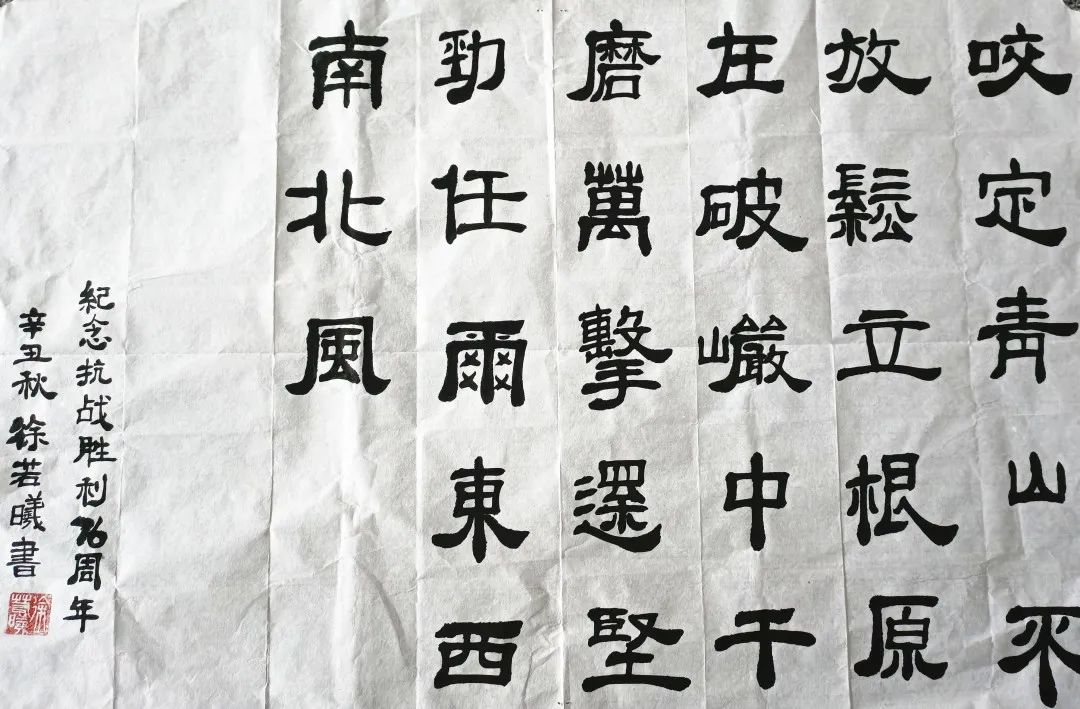 咬定青山不
放鬆立根原
在破巗中千
磨萬擊還堅
勁任爾東西
南北風
紀念抗战胜利76周年
辛丑秋徐若曦書